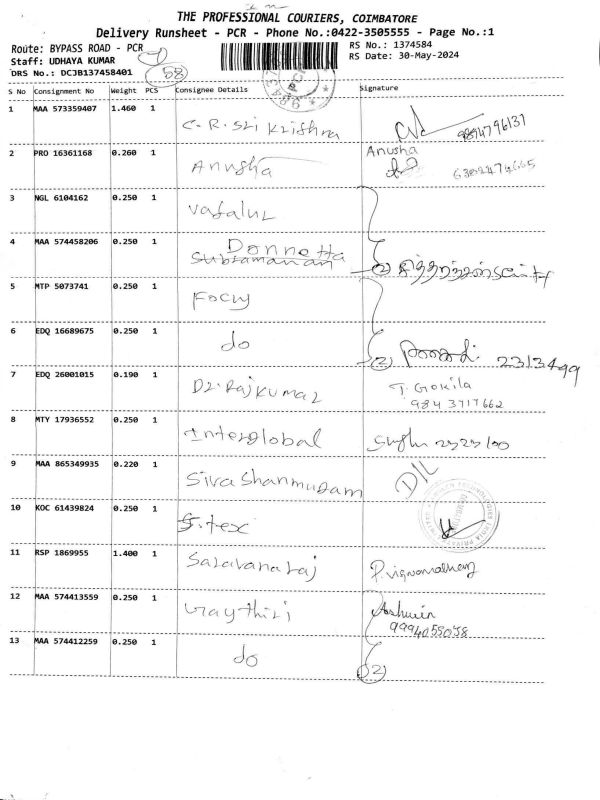 THE PROFESSIONAL COURIERS, COIMBATORE
Delivery Runsheet - PCR - Phone No.:0422-3505555 - Page No.:1
Route: BYPASS ROAD - PCR
RS No.: 1374584
Staff: UDHAYA KUMAR
RS Date: 30-May-2024
DRS No.: DCJB137458401
58
S No Consignment No Weight PCS Consignee Details Signature
1 MAA 573359407 1.460 1 C.R. Sri Krishna 9894796137
2 PRO 16361168 0.260 1 Anusha Anusha
3 NGL 6104162 0.250 1
4 MAA 574458206 0.250 1 Donnetta Subramanian 2
5 MTP 5073741 0.250 1
6 EDQ 16689675 0.250 1 do 2 2313499
7 EDQ 26001015 0.190 1 Dr. Rajkumar T. Gokila
9843717662
8 MTY 17936552 0.250 1 Interglobal
9 MAA 865349935 0.220 1 Sivashanmugam D/L
10 KOC 61439824 0.250 1
11 RSP 1869955 1.400 1 Saravanaraj
12 MAA 574413559 0.250 1 Gaythiri Ashwin
9994055058
13 MAA 574412259 0.250 1 do 2